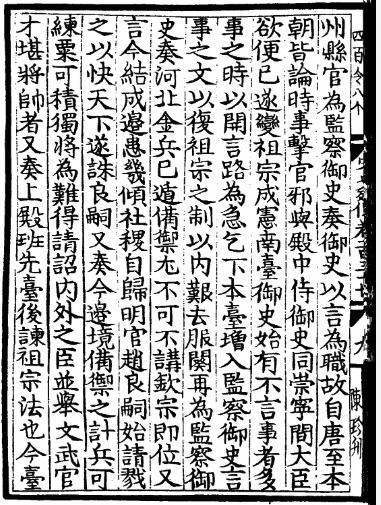 州縣官為監察御史奏御史以言為職故自唐至本
朝皆論時事擊官邪與殿中侍御史同崇寧間大臣
欲便已遂變祖宗成憲南臺御史始有不言事者多
事之時以開言路為急乞下本臺增入監察御史言
事之文以復祖宗之制以内艱去服闋再為監察御
史奏河北金兵已遁備禦尤不可不講欽宗即位又
言今結成邉患幾傾社稷自歸明官趙良嗣始請戮
之以快天下遂誅良嗣又奏今邉境備禦之計兵可
練粟可積獨將為難得請詔内外之臣並舉文武官
才堪將帥者又奏上殿班先臺後諫祖宗法也今臺